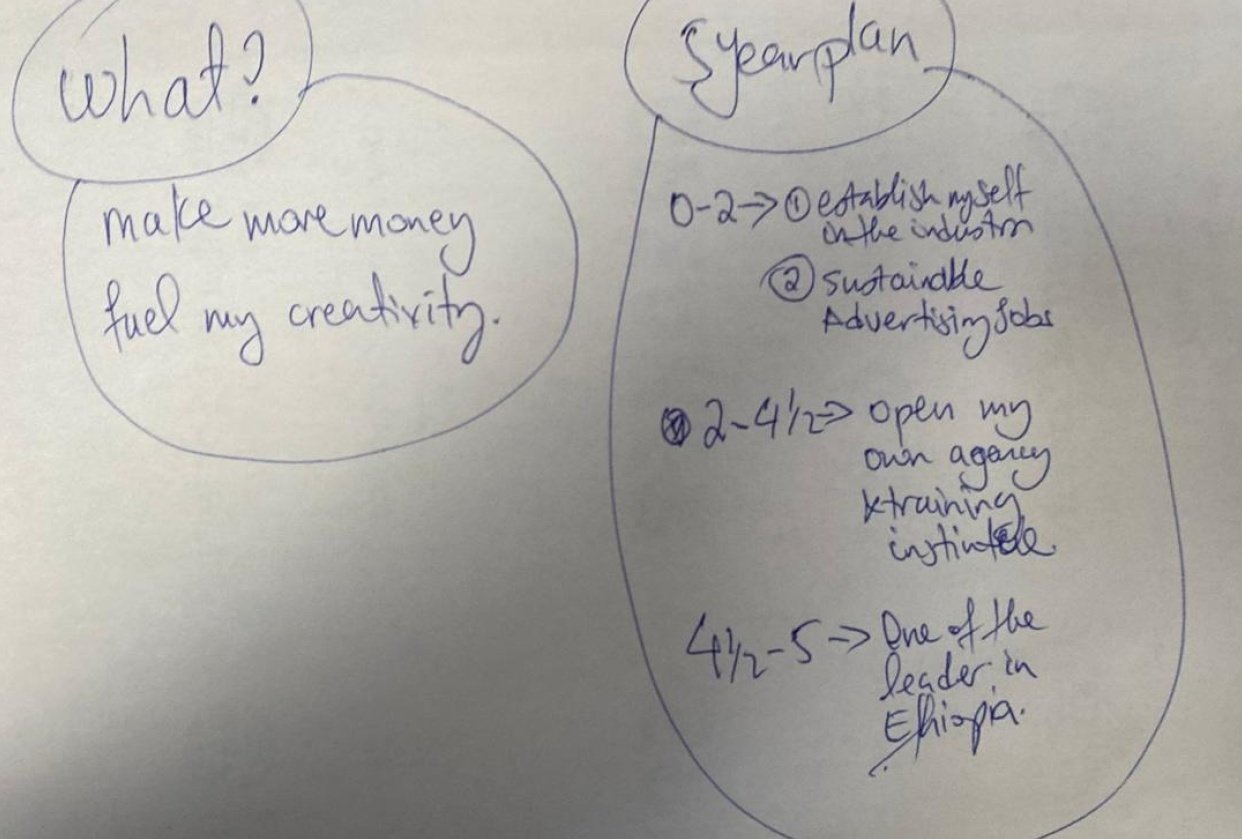 What?
make more money
fuel my creativity.
5 year plan
0-2→ ① establish myself
in the industry
② sustainable
Advertising Jobs
2-4½→ open my
own agency
& training
institute.
4½-5→ One of the
leader in
Ethiopia.